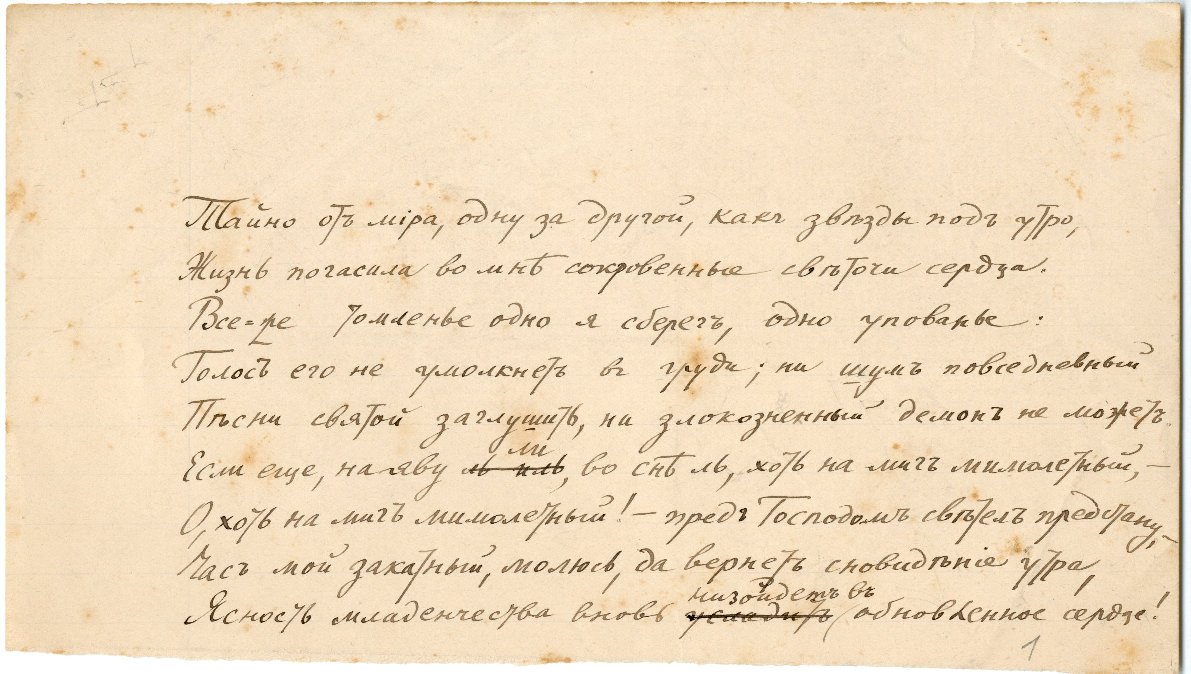 Тайно отъ міра, одну за другой, какъ звѣзды подъ утро,
Жизнь погасила во мнѣ сокровенные свѣточи сердца.
Все-же томленье одно я сберегъ, одно упованье:
Голосъ его не умолкнетъ въ груди; ни шумъ повседневный
Пѣсни святой заглушить, ни злокозненный демонъ не можетъ.
ли
Если еще, на яву ль иль, во снѣ ль, хоть на мигъ мимолетный, –
О, хоть на мигъ мимолетный! – предъ Господомъ свѣтелъ предстану, –
Часъ мой закатный, молюсь, да вернетъ сновидѣніе утра,
низойдетъ въ
Ясность младенчества вновь усладитъ обновленное сердце!
1